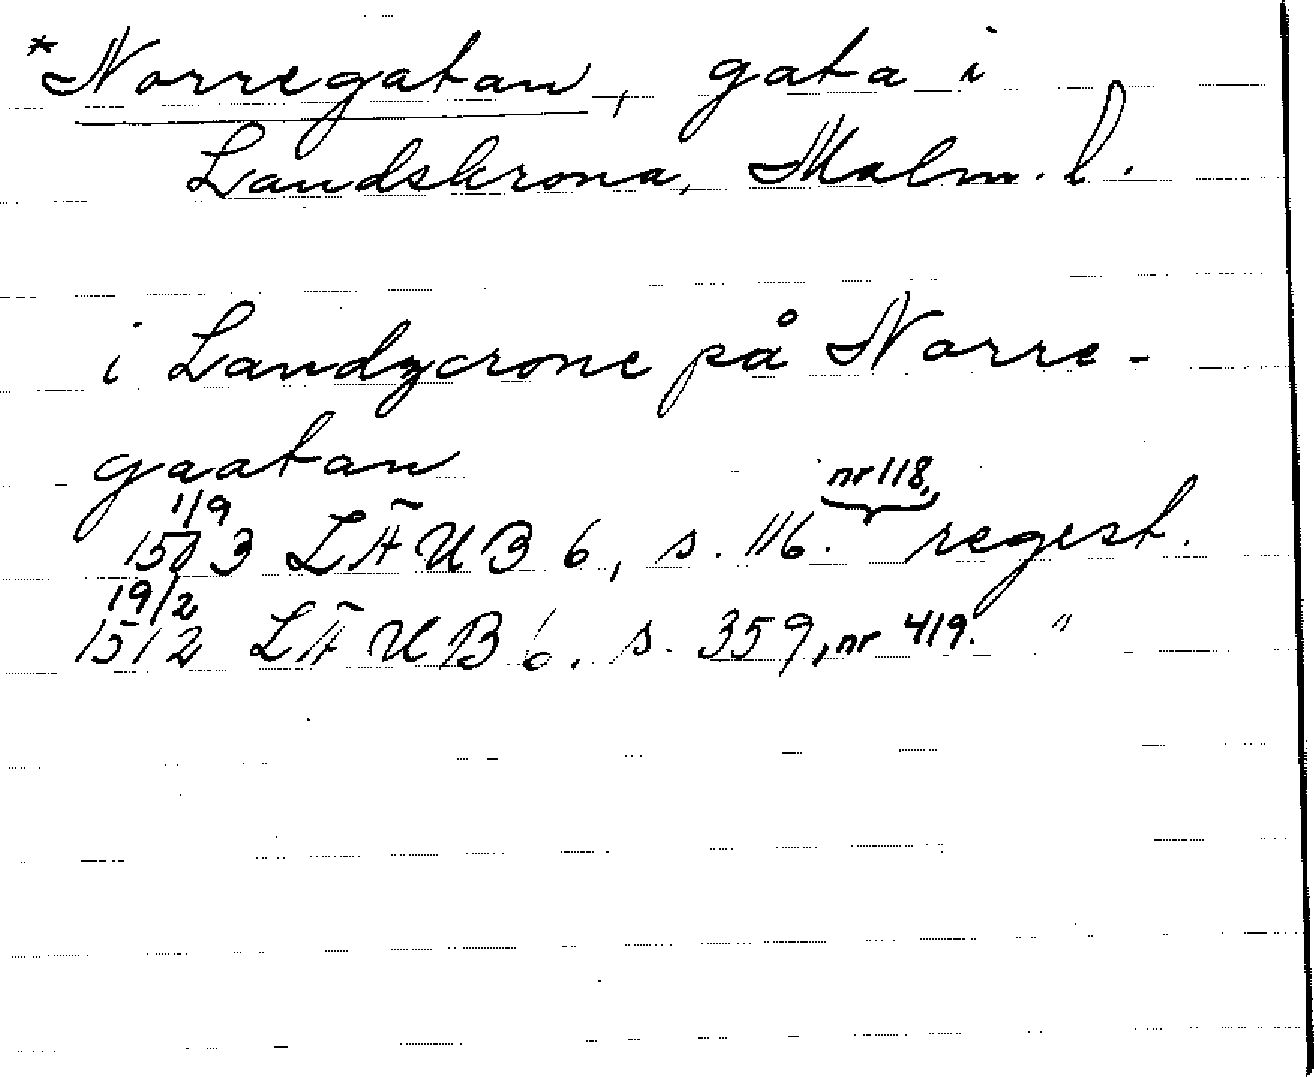 *Norregatan, gata i
Landskrona, Malm. l.
i Landzcrone på Norre-
gaatan
1/9
1503 LÄUB 6, s. 116. nr 118, regest.
19/2
1512 LÄUB 6. s. 359, nr 419. "